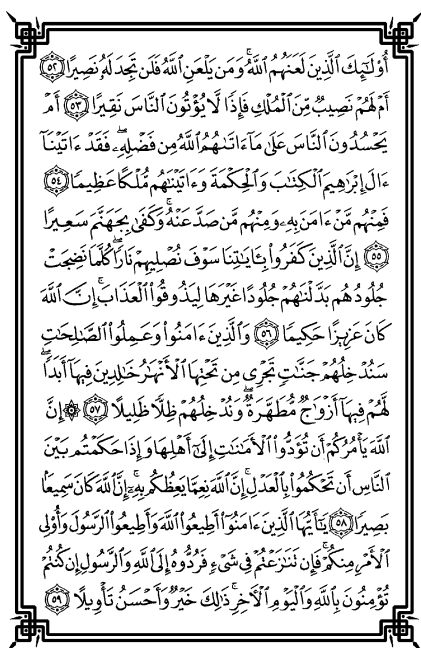 أُوْلَـٰٓئِكَ ٱلَّذِينَ لَعَنَهُمُ ٱللَّهُۖ وَمَن يَلْعَنِ ٱللَّهُ فَلَن تَجِدَ لَهُۥ نَصِيرًا ۝٥٢
أَمْ لَهُمْ نَصِيبٌ مِّنَ ٱلْمُلْكِ فَإِذًا لَّا يُؤْتُونَ ٱلنَّاسَ نَقِيرًا ۝٥٣ أَمْ
يَحْسُدُونَ ٱلنَّاسَ عَلَىٰ مَآ ءَاتَىٰهُمُ ٱللَّهُ مِن فَضْلِهِۦۖ فَقَدْ ءَاتَيْنَآ
ءَالَ إِبْرَٰهِيمَ ٱلْكِتَـٰبَ وَٱلْحِكْمَةَ وَءَاتَيْنَـٰهُم مُّلْكًا عَظِيمًا ۝٥٤
فَمِنْهُم مَّنْ ءَامَنَ بِهِۦ وَمِنْهُم مَّن صَدَّ عَنْهُۚ وَكَفَىٰ بِجَهَنَّمَ سَعِيرًا
۝٥٥ إِنَّ ٱلَّذِينَ كَفَرُوا۟ بِـَٔايَـٰتِنَا سَوْفَ نُصْلِيهِمْ نَارًا كُلَّمَا نَضِجَتْ
جُلُودُهُم بَدَّلْنَـٰهُمْ جُلُودًا غَيْرَهَا لِيَذُوقُوا۟ ٱلْعَذَابَۗ إِنَّ ٱللَّهَ
كَانَ عَزِيزًا حَكِيمًا ۝٥٦ وَٱلَّذِينَ ءَامَنُوا۟ وَعَمِلُوا۟ ٱلصَّـٰلِحَـٰتِ
سَنُدْخِلُهُمْ جَنَّـٰتٍ تَجْرِى مِن تَحْتِهَا ٱلْأَنْهَـٰرُ خَـٰلِدِينَ فِيهَآ أَبَدًاۖ
لَّهُمْ فِيهَآ أَزْوَٰجٌ مُّطَهَّرَةٌۖ وَنُدْخِلُهُمْ ظِلًّا ظَلِيلًا ۝٥٧ ۞ إِنَّ
ٱللَّهَ يَأْمُرُكُمْ أَن تُؤَدُّوا۟ ٱلْأَمَـٰنَـٰتِ إِلَىٰٓ أَهْلِهَا وَإِذَا حَكَمْتُم بَيْنَ
ٱلنَّاسِ أَن تَحْكُمُوا۟ بِٱلْعَدْلِۚ إِنَّ ٱللَّهَ نِعِمَّا يَعِظُكُم بِهِۦٓۗ إِنَّ ٱللَّهَ كَانَ سَمِيعًۢا
بَصِيرًا ۝٥٨ يَـٰٓأَيُّهَا ٱلَّذِينَ ءَامَنُوٓا۟ أَطِيعُوا۟ ٱللَّهَ وَأَطِيعُوا۟ ٱلرَّسُولَ وَأُو۟لِى
ٱلْأَمْرِ مِنكُمْۖ فَإِن تَنَـٰزَعْتُمْ فِى شَىْءٍ فَرُدُّوهُ إِلَى ٱللَّهِ وَٱلرَّسُولِ إِن كُنتُمْ
تُؤْمِنُونَ بِٱللَّهِ وَٱلْيَوْمِ ٱلْـَٔاخِرِۚ ذَٰلِكَ خَيْرٌ وَأَحْسَنُ تَأْوِيلًا ۝٥٩